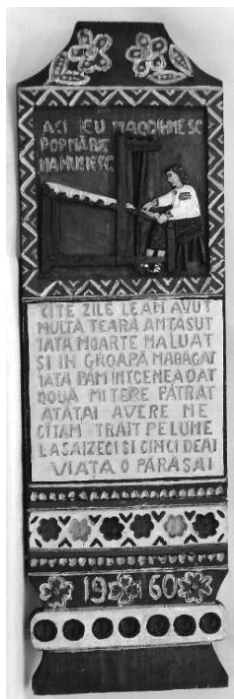 ACI IEU MAODIHNESC
POP MĂRIE
MANUMESC
CITE ZILE LEAM AVUT
MULTA TEARĂ AMTĂSUT
IATA MOARTE MALUAT
SI IN GROAPĂ MABĂGAT
IATA PĂMINTCENEADAT
DOUĂ MITERE PĂTRAT
ATĂTAI AVERE NE
CITAM TRAIT PE LUME
LA SAIZECI SI CINCI DEAI
VIATA O PĂRĂSAI
1960